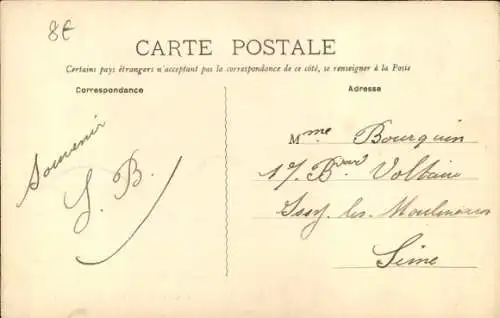 8€
CARTE POSTALE
Certains pays étrangers n'acceptant pas la correspondance de ce côté, se renseigner à la Poste
Correspondance
Souvenir
S. B.
Adresse
Mme Bourquin
17. Bard Voltaire
Issy les Moulineaux
Seine